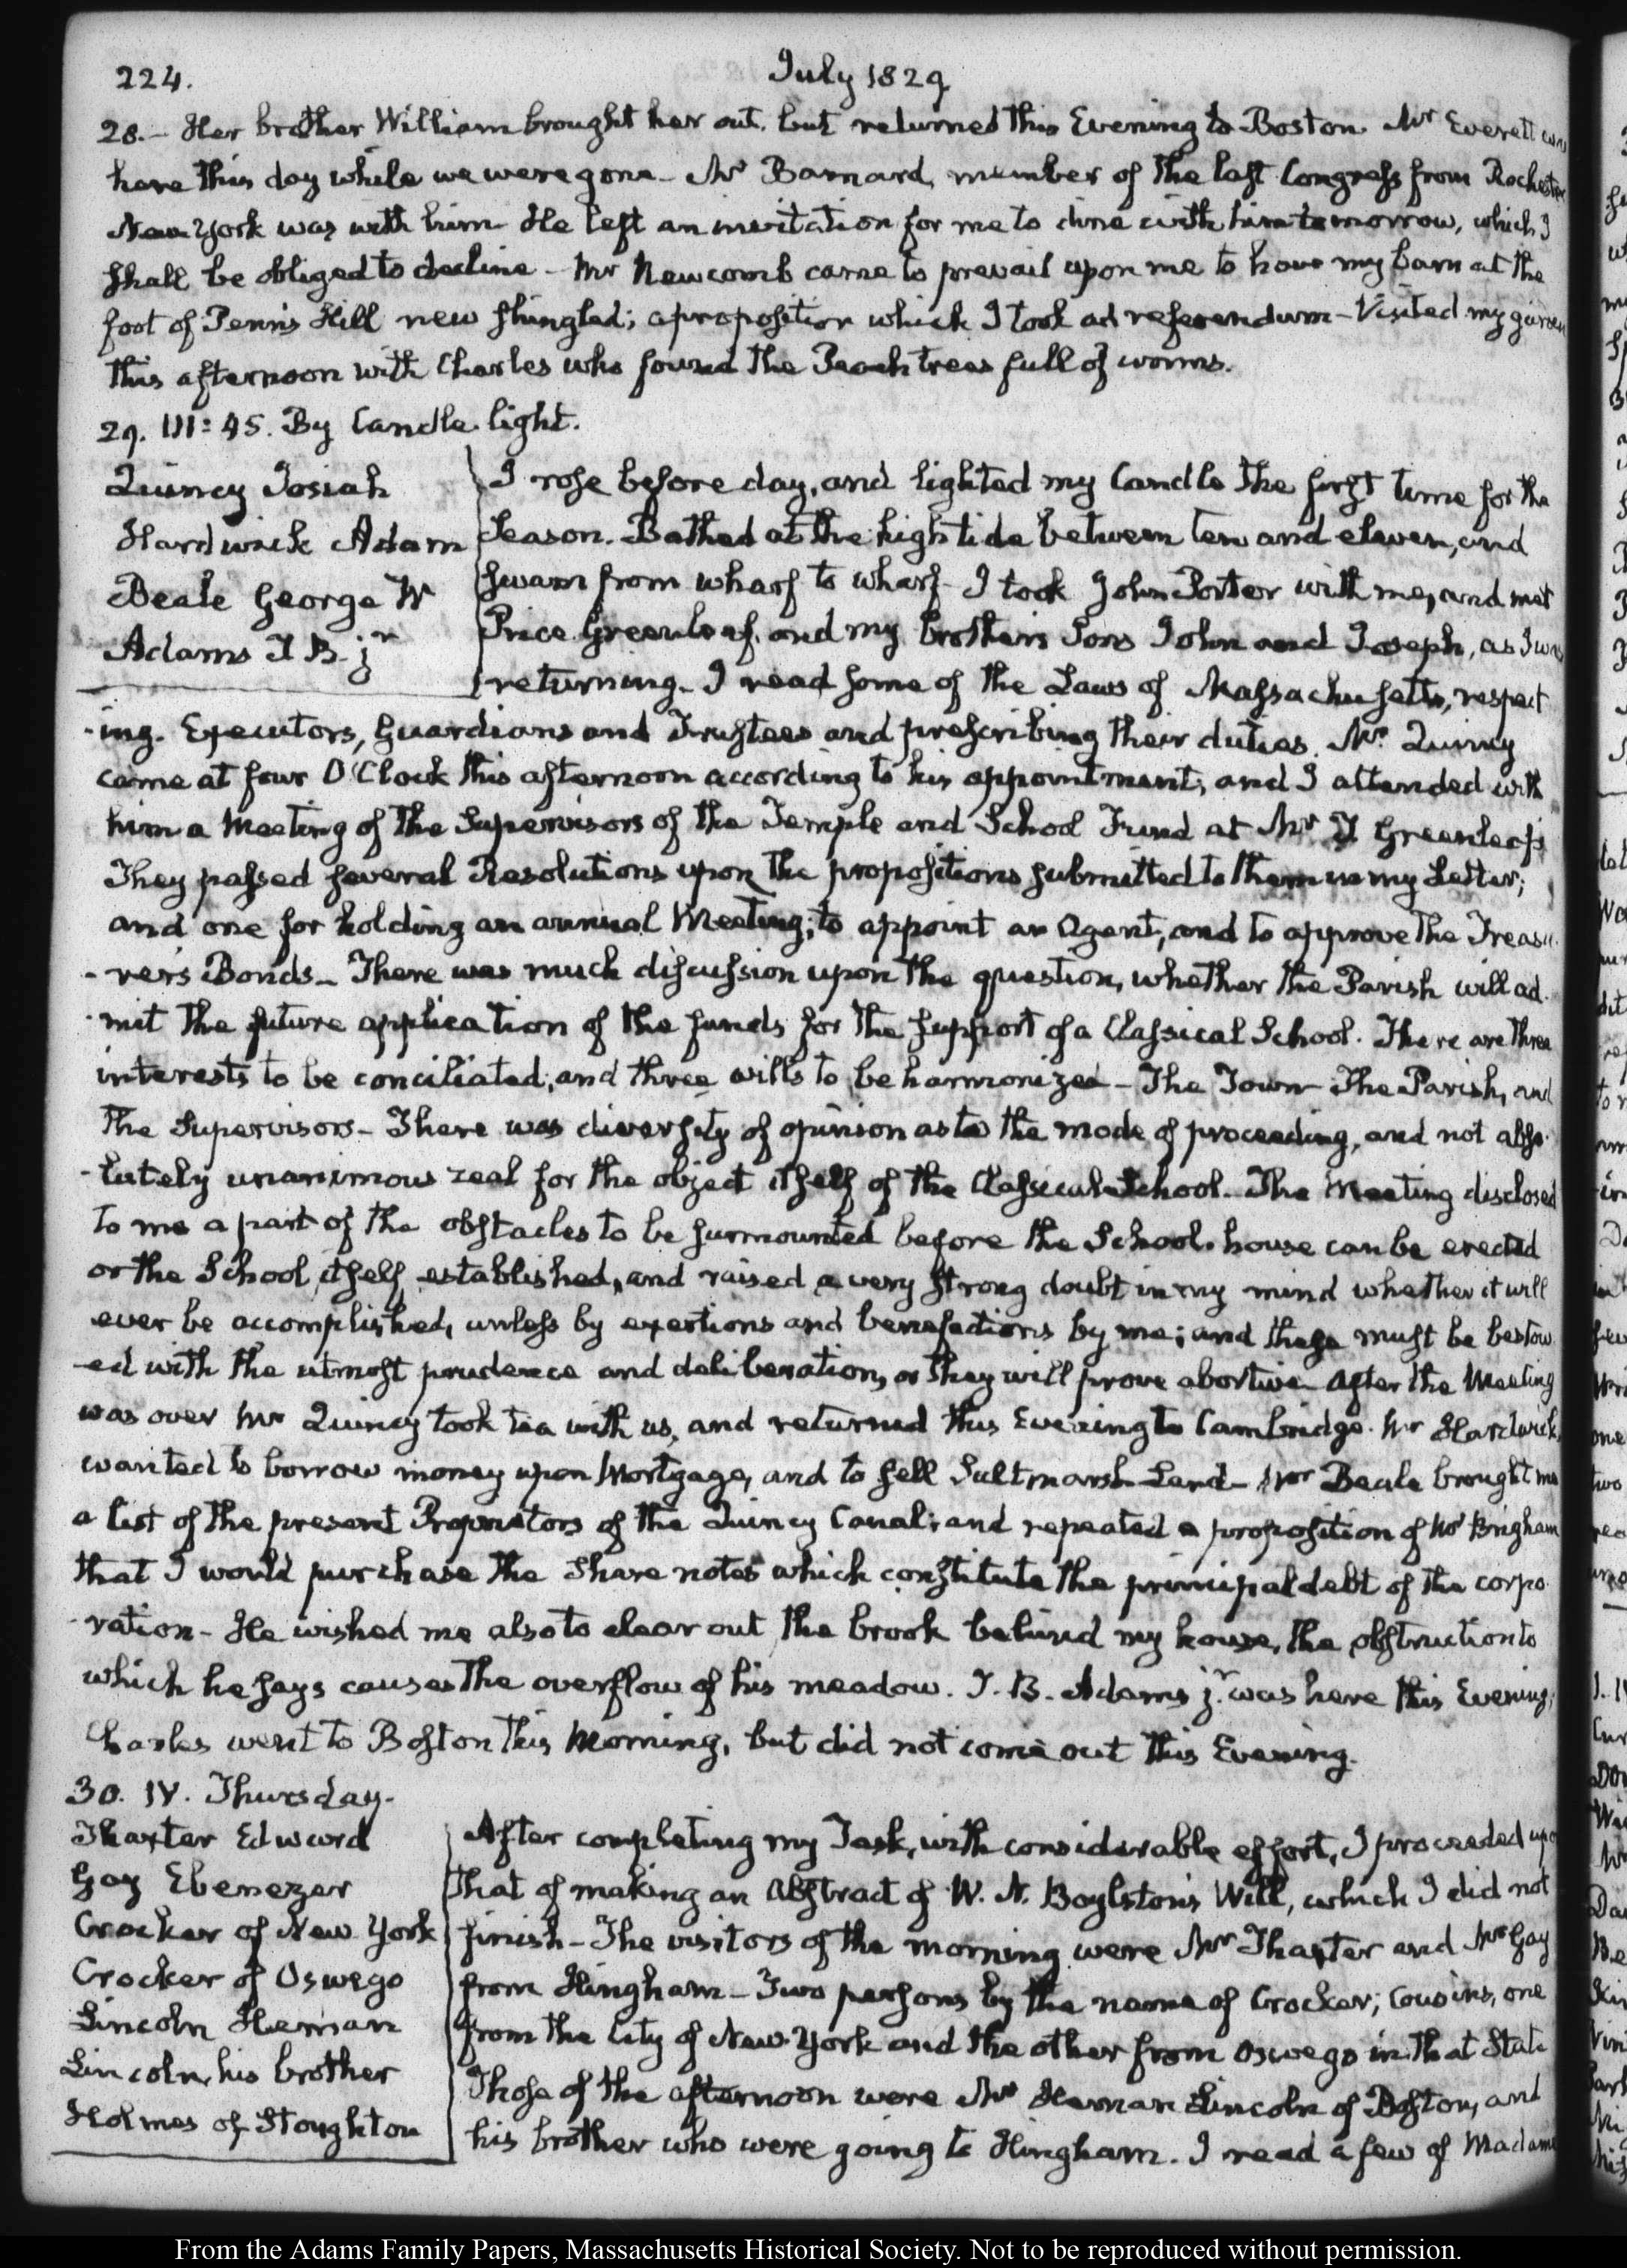 224.
July 1829
28. – Her brother William brought her out, but returned this Evening to Boston. Mr Everett was
here this day while we were gone – Mr Barnard, member of the last Congress from Rochester
New York was with him He left an invitation for me to dine with him tomorrow, which I
shall be obliged to decline – Mr Newcomb came to prevail upon me to have my barn at the
foot of Penn's Hill new shingled; a proposition which I took ad referendum – Visited my
this afternoon with Charles who found the Peach trees full of worms.
29. III: 45. By Candle light.
Quincy Josiah
Hardwick Adam
Beale George W
Adams T B. jr
I rose before day, and lighted my Candle the first time for the
Season. Bathed at the high tide between ten and eleven, and
swam from wharf to wharf – I took John Porter with me, and met
Price Greenleaf, and my brother's Sons John and Joseph, as I was
returning. – I read some of the Laws of Massachusetts, respect
-ing Executors, Guardians and Trustees and prescribing their duties. Mr Quincy
came at four O'Clock this afternoon according to his appointment, and I attended with
him a Meeting of the Supervisors of the Temple and School Fund at Mr T Greenleaf's
They passed several Resolutions upon the propositions submitted to them in my Letter;
and one for holding an annual Meeting; to appoint an Agent, and to approve the Treasu
-rer's Bonds – There was much discussion upon the question, whether the Parish will ad-
-mit the future application of the funds for the support of a Classical School. There are three
interests to be conciliated, and three wills to be harmonized – The Town – The Parish, and
the Supervisors – There was diversity of opinion as to the mode of proceeding, and not abso-
-lutely unanimous zeal for the object itself of the Classical School. The Meeting disclosed
to me a part of the obstacles to be surmounted before the School-house can be erected
or the School itself established, and raised a very strong doubt in my mind whether it will
ever be accomplished, unless by exertions and benefactions by me; and these must be bestow
-ed with the utmost prudence and deliberation, or they will prove abortive – After the Meeting
was over Mr Quincy took tea with us, and returned this Evening to Cambridge. Mr Hardwick,
wanted to borrow money upon Mortgage, and to sell Salt marsh Land – Mr Beale brought me
a list of the present Proprietors of the Quincy Canal; and repeated a proposition of Mr Brigham
that I would purchase the Share notes which constitute the principal debt of the corpo
-ration – He wished me also to clear out the brook behind my house, the obstruction to
which he says causes the overflow of his meadow. T. B. Adams jr. was here this Evening,
Charles went to Boston this Morning, but did not come out this Evening.
30. IV. Thursday.
Thaxter Edward
Gay Ebenezer
Crocker of New York
Crocker of Oswego
Lincoln Heman
Lincoln, his brother
Holmes of Stoughton
After completing my Task, with considerable effort, I proceeded upon
that of making an Abstract of W. N. Boylston's Will, which I did not
finish – The visitors of the morning were Mr Thaxter and Mr Gay
from Hingham – Two persons by the name of Crocker; Cousins, one
from the City of New York and the other from Oswego in that State
Those of the afternoon were Mr Heman Lincoln of Boston, and
his brother who were going to Hingham. I read a few of Madame
From the Adams Family Papers, Massachusetts Historical Society. Not to be reproduced without permission.